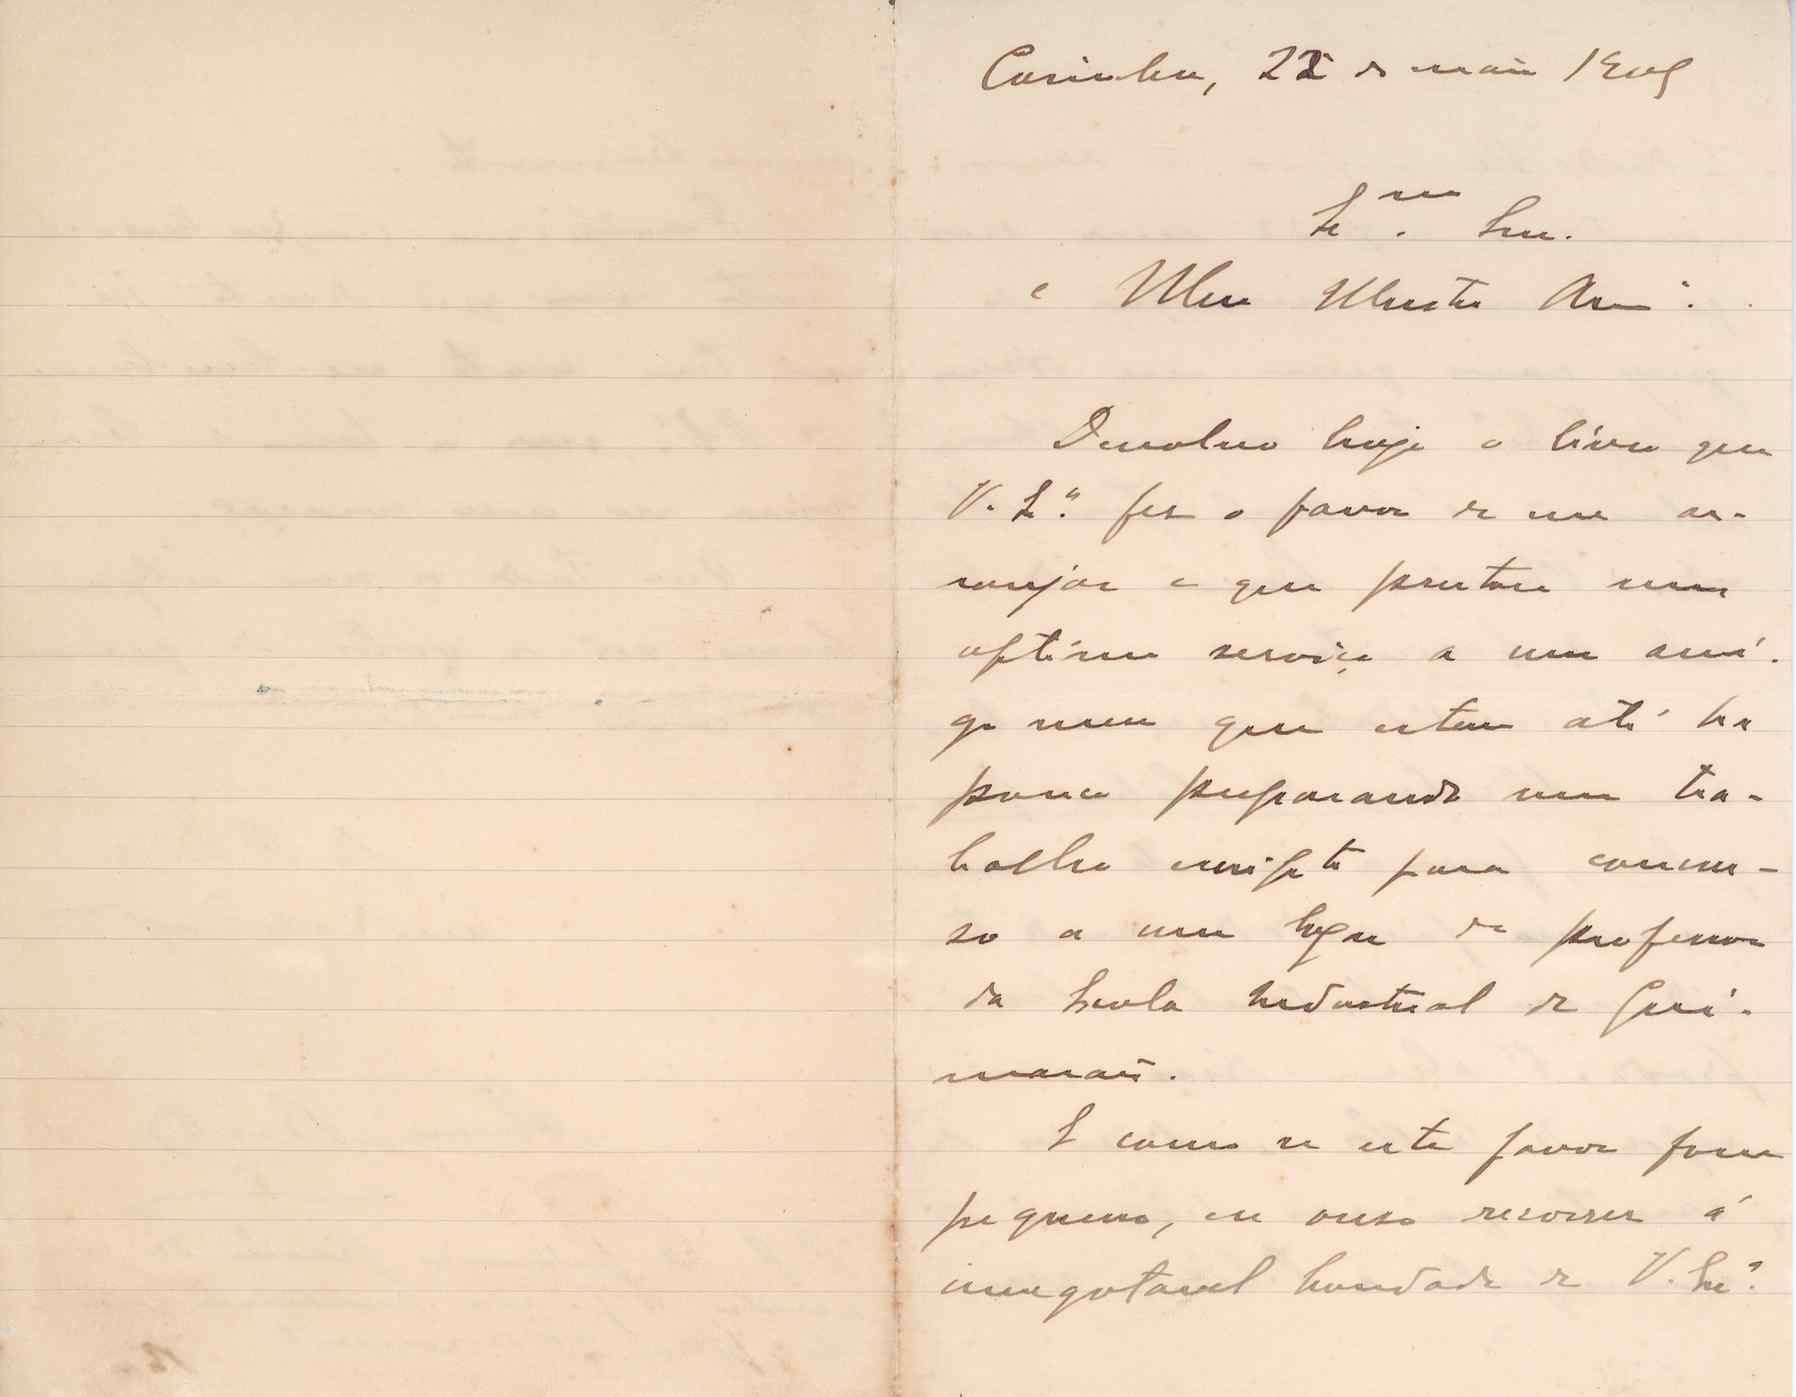 22 de maio 190
Ex.mo Snr.
e Meu Illustre Am.º
Devolvo hoje o livro que
V. Ex.ª fez o favor de me ar-
ranjar e que prestou um
optimo serviço a um ami-
go meu que esteve até ha
pouco preparando um tra-
balho escripto para concur-
so a um logar de professor
da Escola Industrial de Gui-
marães.
E como se este favor fosse
pequeno, eu ouso recorrer á
inexgotavel bondade de V. Ex.ª